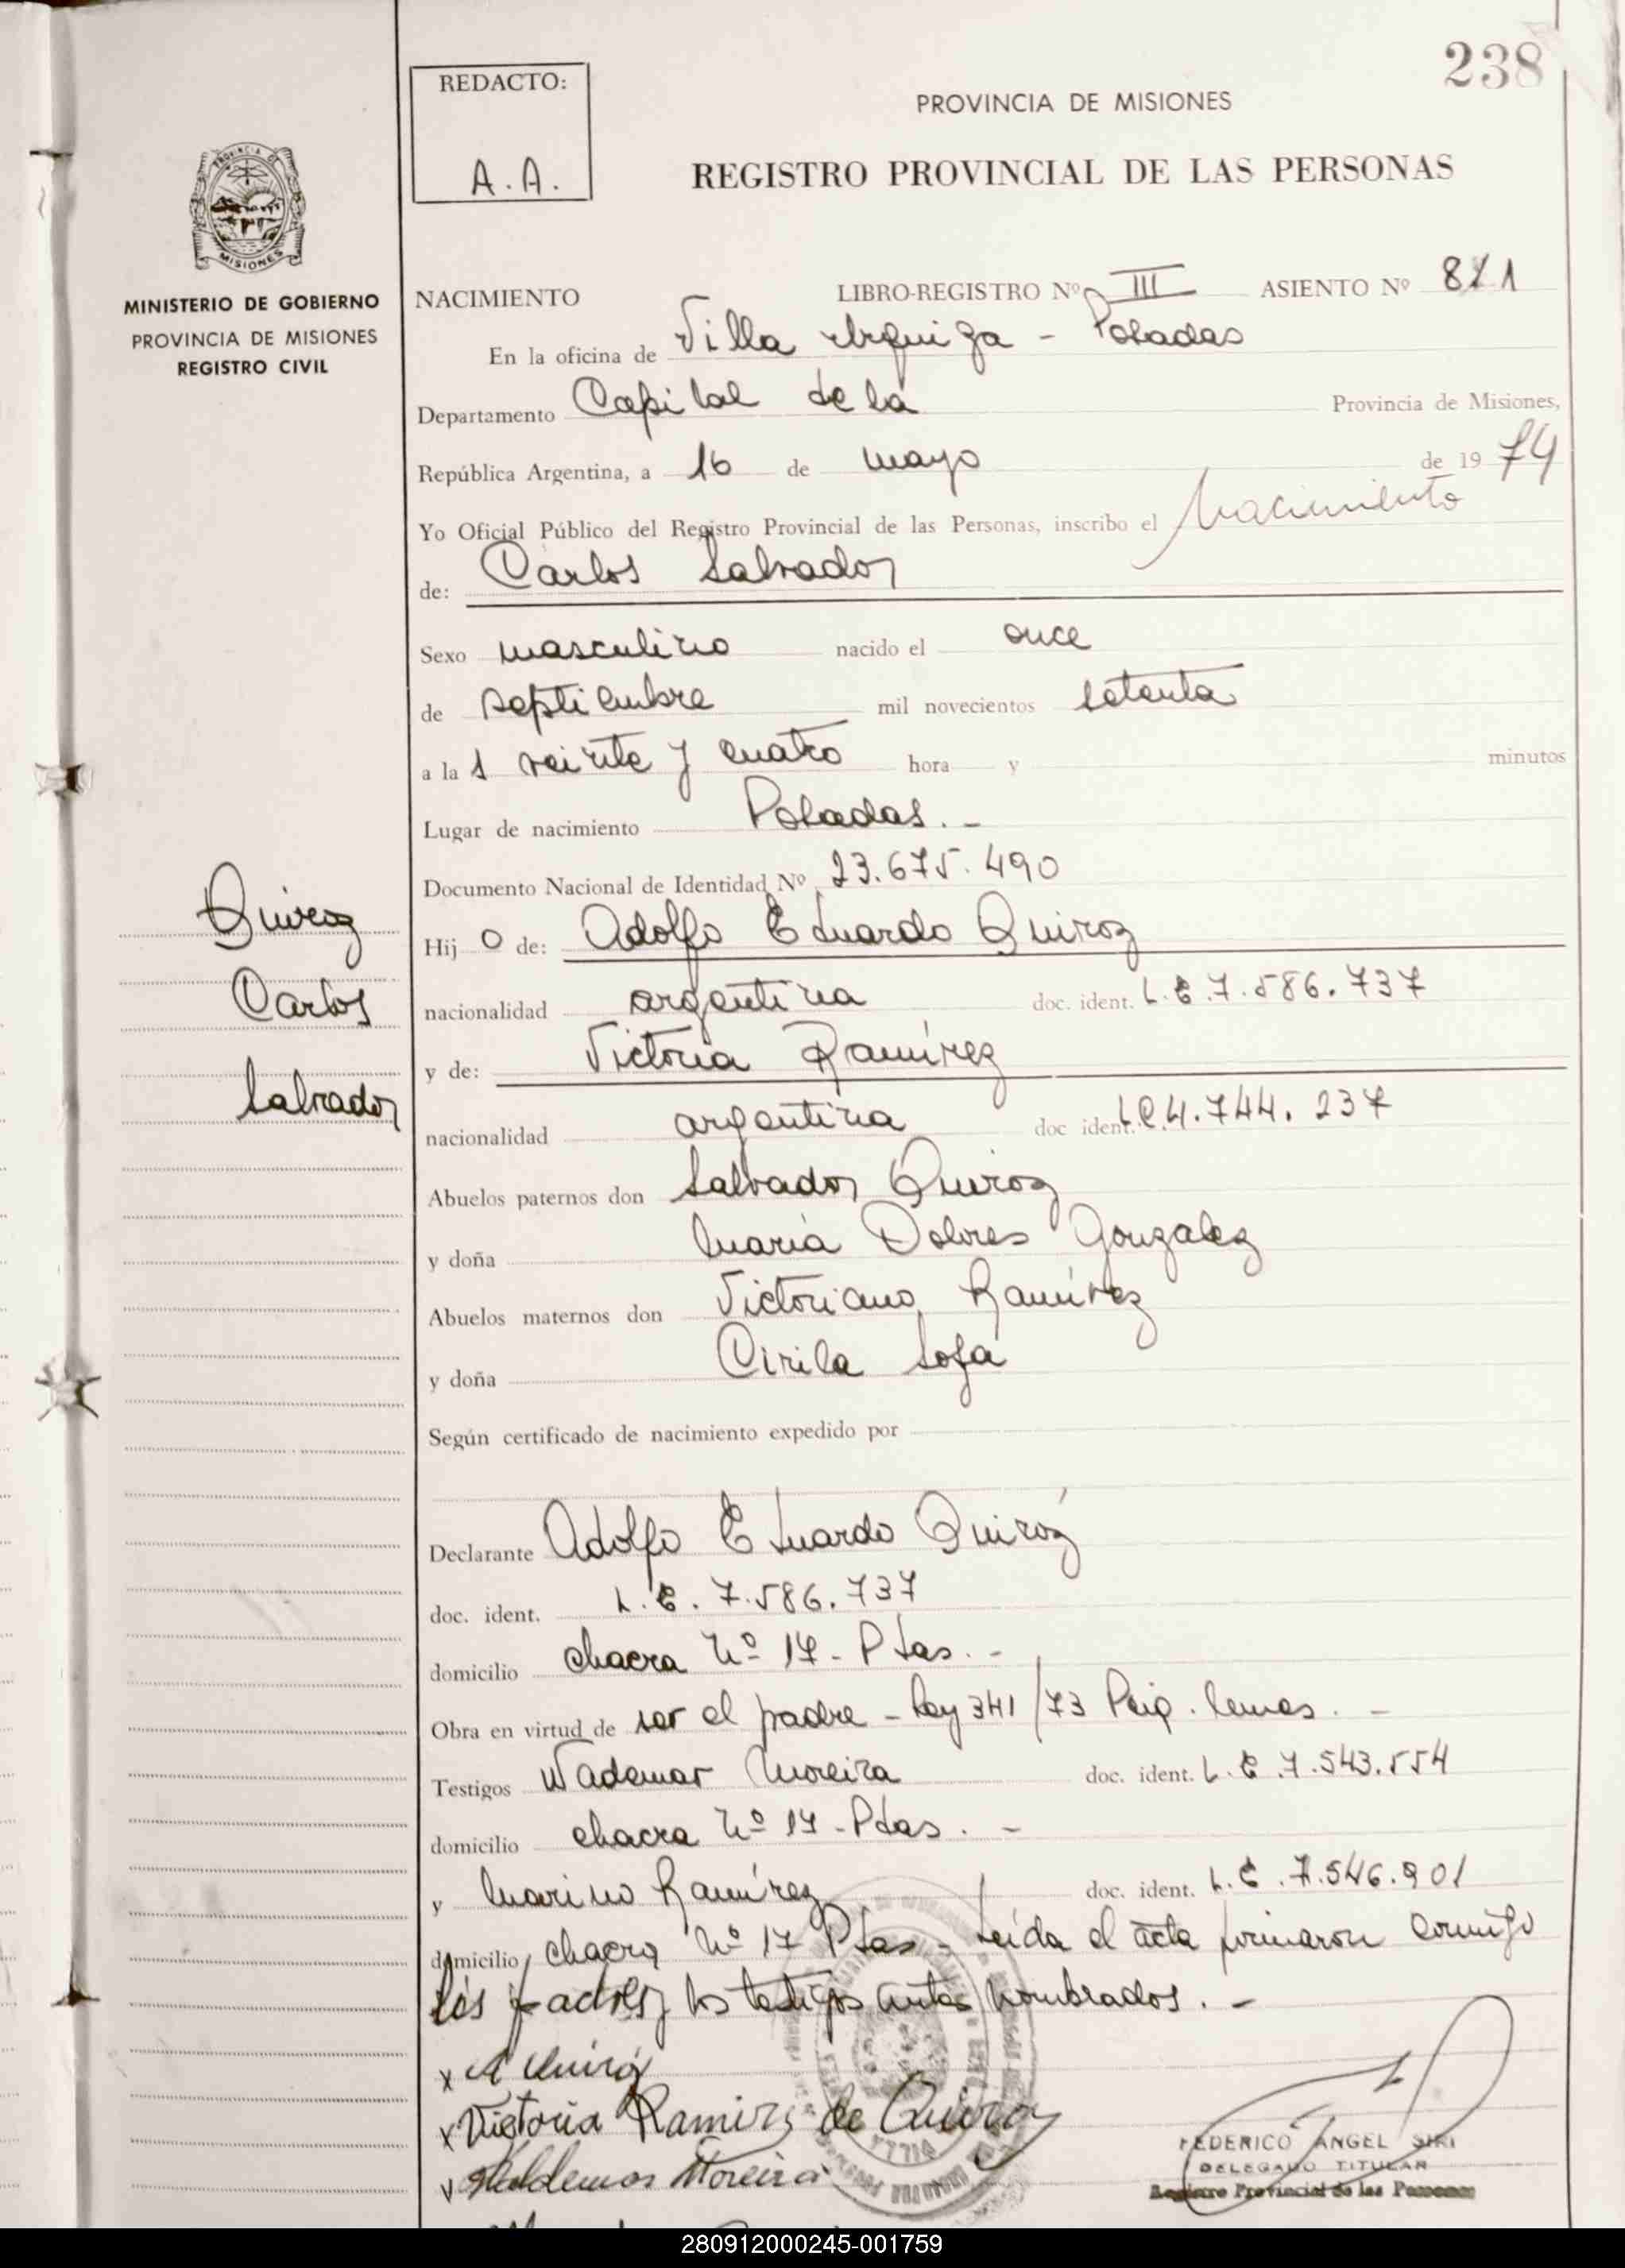 238
REDACTO:
A.A.
PROVINCIA DE MISIONES
REGISTRO PROVINCIAL DE LAS PERSONAS
MISIONES
MINISTERIO DE GOBIERNO
PROVINCIA DE MISIONES
REGISTRO CIVIL
NACIMIENTO LIBRO-REGISTRO Nº III ASIENTO Nº 821
En la oficina de Villa Urquiza - Posadas
Departamento Capital de la Provincia de Misiones,
República Argentina, a 16 de mayo de 1974
Yo Oficial Público del Registro Provincial de las Personas, inscribo el Nacimiento
de: Carlos Salvador
Sexo masculino nacido el once
de septiembre mil novecientos setenta
a las veinte y cuatro hora y minutos
Lugar de nacimiento Posadas.-
Documento Nacional de Identidad Nº 23.675.490
Quiroz
Carlos
Salvador
Hijo de: Adolfo Eduardo Quiroz
nacionalidad argentina doc. ident. L.E.7.586.737
y de: Victoria Ramírez
nacionalidad argentina doc ident. L.C.4.744.237
Abuelos paternos don Salvador Quiroz
y doña María Dolores Gonzalez
Abuelos maternos don Victoriano Ramírez
y doña Cirila Sosa
Según certificado de nacimiento expedido por
Declarante Adolfo Eduardo Quiróz
doc. ident. L.E. 7.586.737
domicilio chacra Nº 17 - Pdas. -
Obra en virtud de ser el padre - Ley 341/73
Testigos Wademar Moreira doc. ident. L.E.7.543.554
domicilio chacra Nº 17 - Pdas. -
y Marino Ramírez doc. ident. L.E.7.546.901
domicilio chacra Nº 17 Pdas - Leída el acta firmaron conmigo
los padres y los testigos antes nombrados. -
x A Quiróz
x Victoria Ramirez de Quiroz
x Waldemar Moreira
FEDERICO ANGEL SIRI
DELEGADO TITULAR
Registro Provincial de las Personas
280912000245-001759